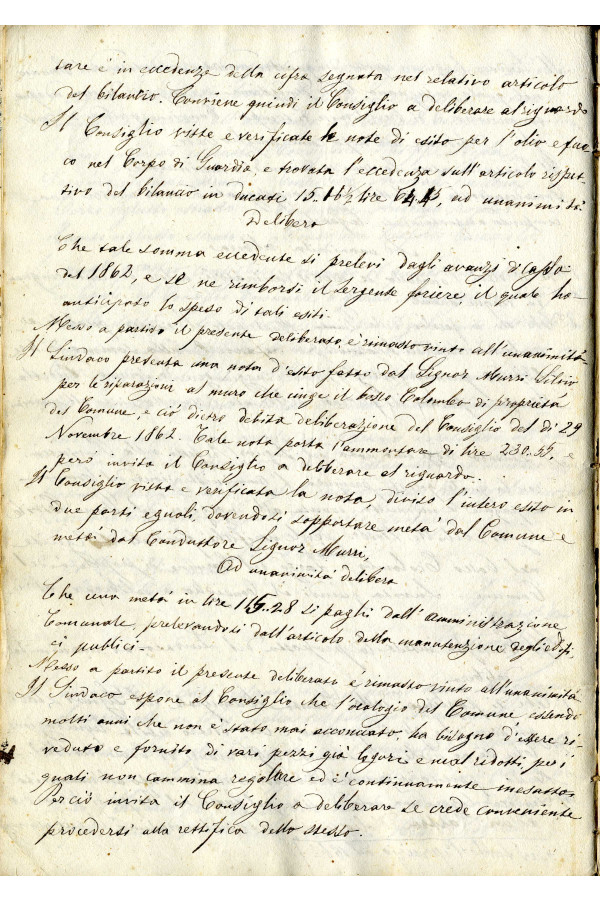 tare è in eccedenza della cifra segnata nel relativo articolo
del bilancio. Conviene quindi il Consiglio a deliberare al riguardo
Il Consiglio viste e verificate le note di esito per l'olio e fuo
co nel Corpo di Guardia, e trovata l'eccedenza sull'articolo rispet
tivo del bilancio in ducati 15..16½ lire 64,45, ad unanimità
Delibera
Che tale somma eccedente si prelevi dagli avanzi di Cassa
del 1862, e se ne rimborsi il Sergente foriere, il quale ha
anticipato lo speso di tali esiti.
Messo a partito il presente deliberato, è rimasto vinto all'unanimità
Il Sindaco presenta una nota d'esito fatto dal Signor Murri Silvio
per le riparazioni al muro che cinge il Colombo di proprietà
del Comune, e ciò dietro debita deliberazione del Consiglio del dì 29
Novembre 1862. Tale nota porta l'ammontare di lire 230.55, e
però invita il Consiglio a deliberare al riguardo.
Il Consiglio vista e verificata la nota, diviso l'intero esito in
due parti eguali, dovendosi sopportare metà dal Comune e
metà dal Conduttore Signor Murri,
Ad unanimità delibera
Che una metà in lire 115..28 si paghi dall'amministrazione
Comunale, prelevandosi dall'articolo della manutenzione degli edifi-
ci publici.-
Messo a partito il presente deliberato è rimasto vinto all'unanimità
Il Sindaco espone al Consiglio che l'orologio del Comune essendo
molti anni che non è stato mai acconciato, ha bisogno d'essere ri-
veduto e fornito di vari pezzi già logori e mal ridotti, per i
quali non cammina regolare ed è continuamente inesatto.
Perciò invita il Consiglio a deliberare se crede conveniente
procedersi alla rettifica dello stesso.